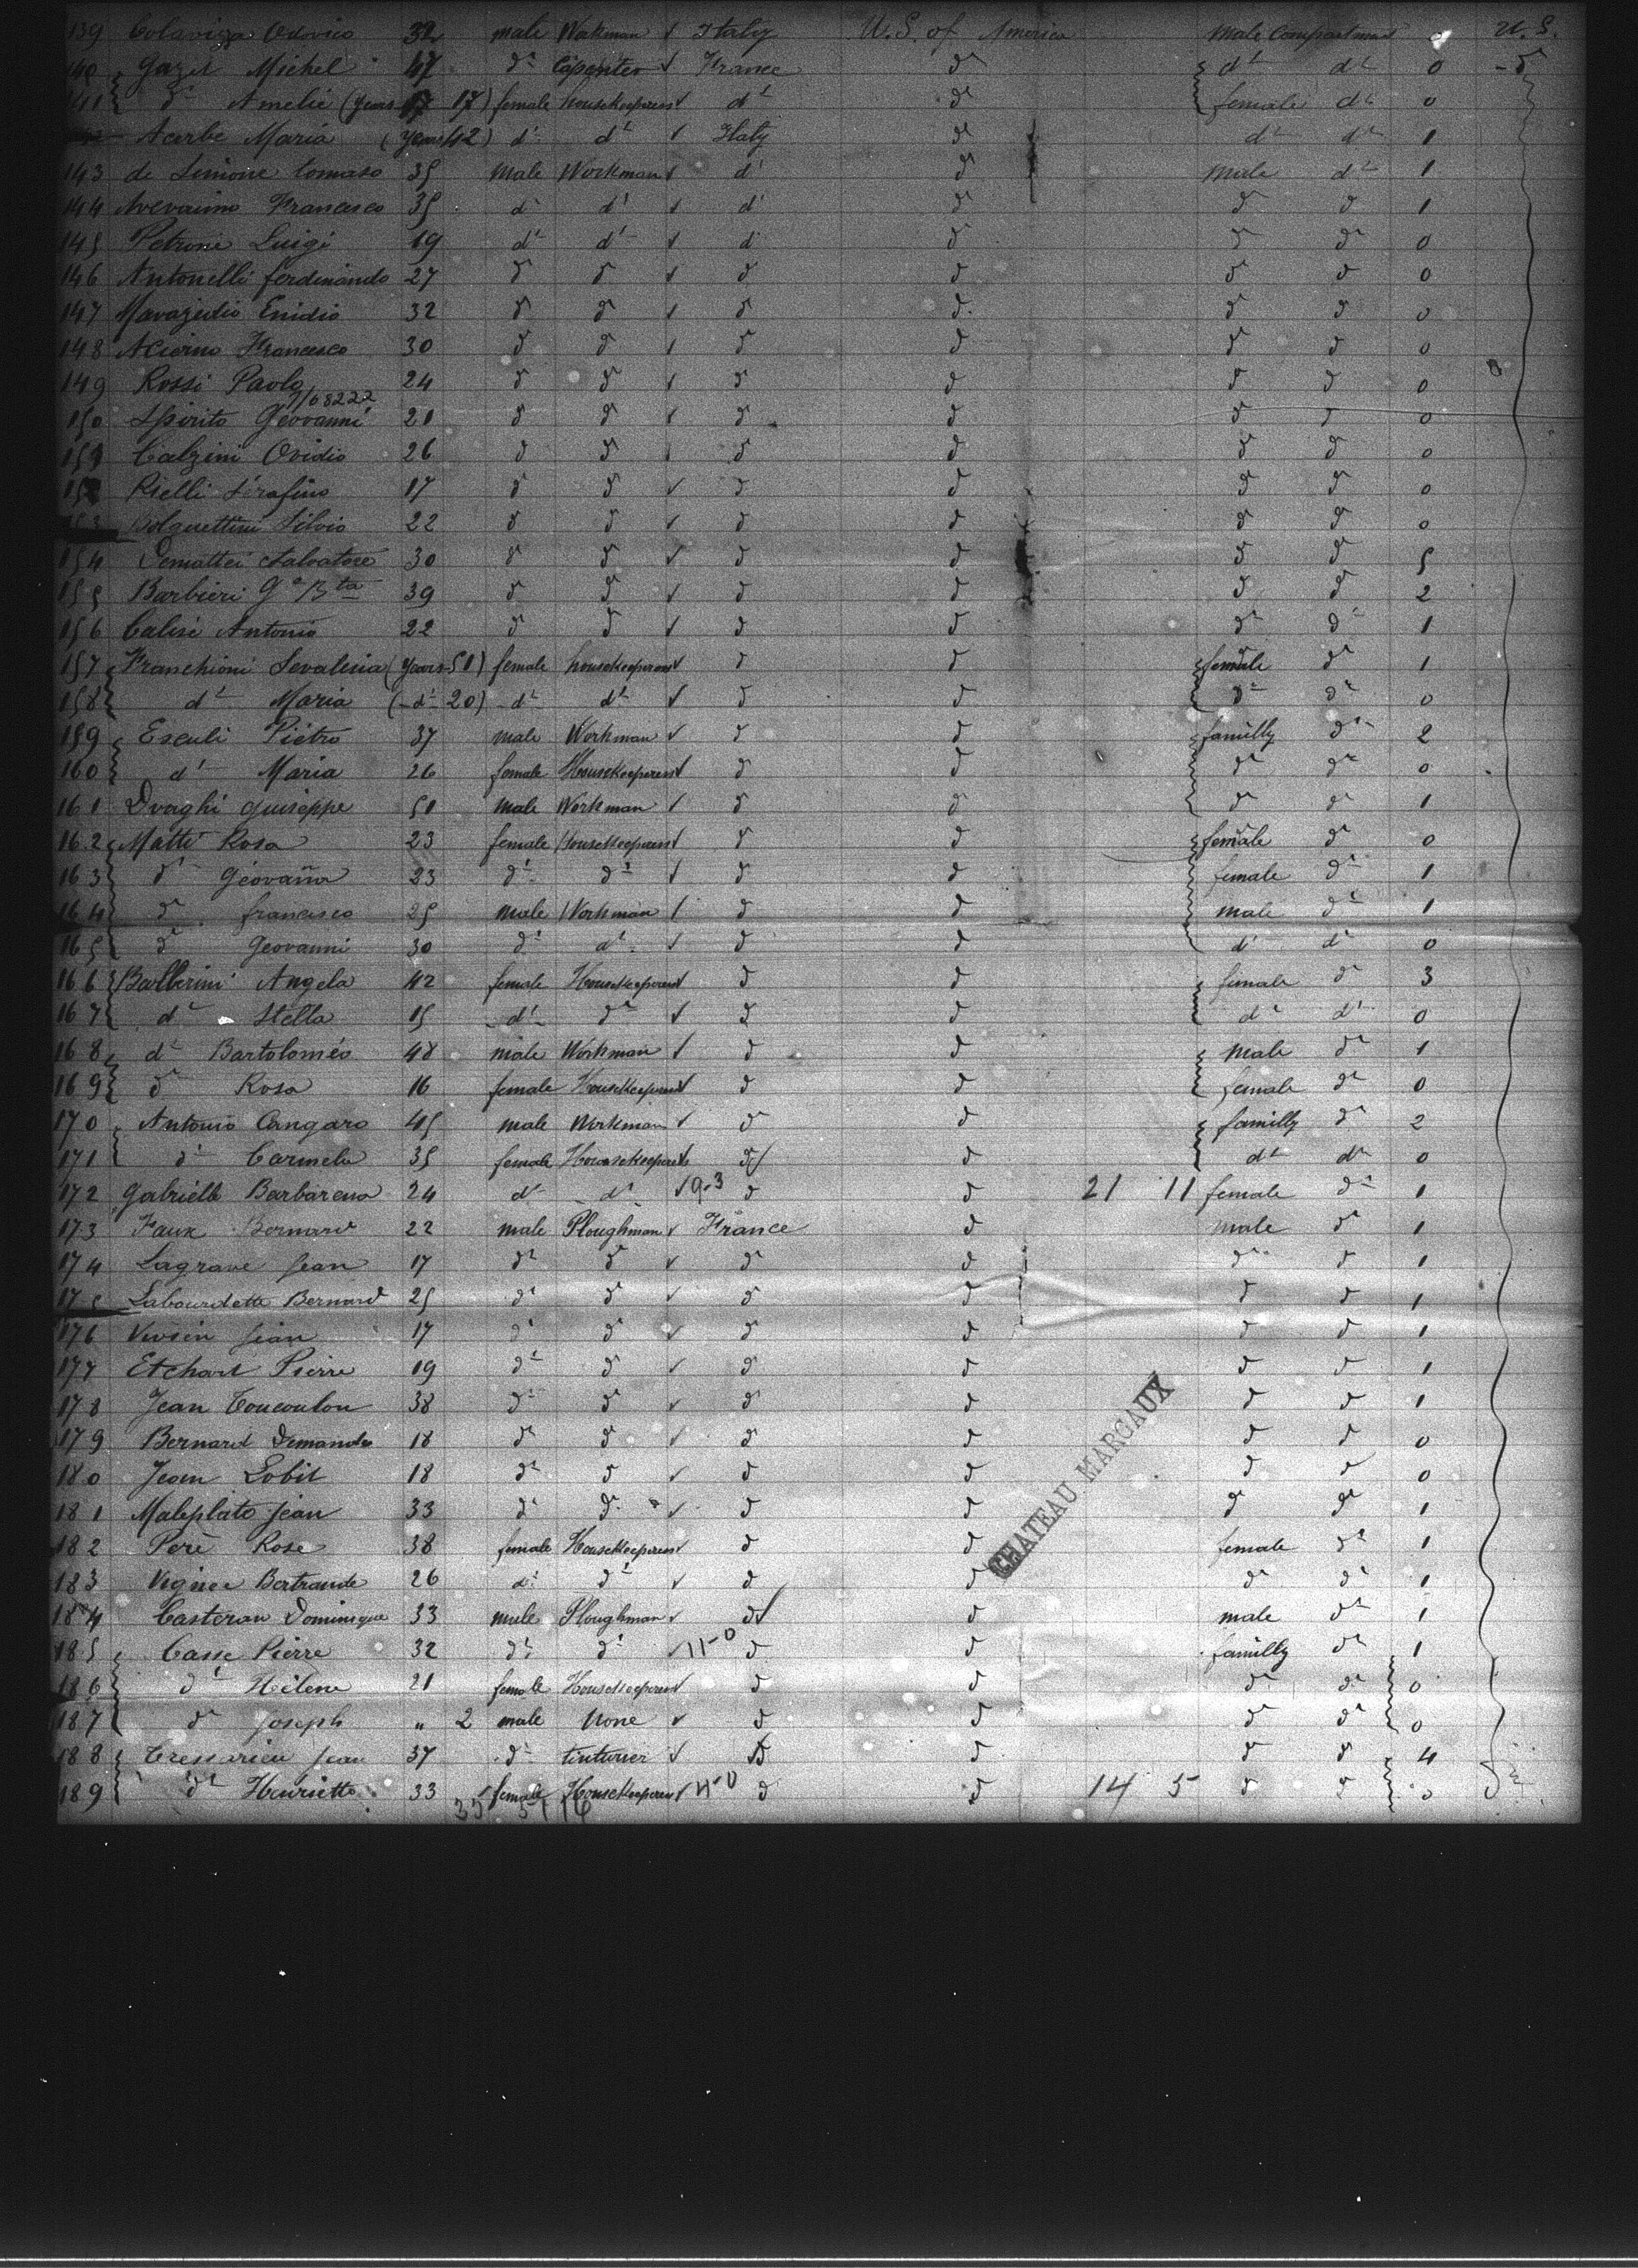 139 Colavizza Odorico 32 male Workman √ Italy U.S. of America Male Compartment 0 U.S.
140 Gazet Michel 47 d° Capenter √ France d° d° d° 0 - d°
141 d° Amelie (years 17) female housekeeperess √ d° d° female d° 0
Acerbe Maria (years 42) d° d° √ Italy d° d° d° 1
143 de Simone tomaso 35 Male Workman √ d° d° Male d° 1
144 Francesco 35 d° d° √ d° d° d° d° 1
145 Petrone Luigi 19 d° d° √ d° d° d° d° 0
146 Antonelli ferdinando 27 d° d° √ d° d° d° d° 0
147 Enidio 32 d° d° √ d° d° d° d° 0
148 Acierno Francesco 30 d° d° √ d° d° d° d° 0
149 Rossi Paolo 24 d° d° √ d° d° d° d° 0
150 Spirito Geovanni 21 d° d° √ d° d° d° d° 0
151 Calzini Ovidio 26 d° d° √ d° d° d° d° 0
152 Rielli Serafino 17 d° d° √ d° d° d° d° 0
153 Silvio 22 d° d° √ d° d° d° d° 0
154 Demattei Salvatore 30 d° d° √ d° d° d° d° 5
155 Barbieri Ga Bta 39 d° d° √ d° d° d° d° 2
156 Calisi Antonio 22 d° d° √ d° d° d° d° 1
157 Franchioni (years 51) female housekeeperess √ d° d° female d° 1
158 d° Maria (d° 20) d° d° √ d° d° d° d° 0
159 Esculi Pietro 37 male Workman √ d° d° familly d° 2
160 d° Maria 26 female Housekeeperess √ d° d° d° d° 0
161 Draghi Guiseppe 51 male Workman √ d° d° d° d° 1
162 Matte Rosa 23 female Housekeeperess √ d° d° female d° 0
163 d° Geovanna 23 d° d° √ d° d° female d° 1
164 d° francisco 25 male Workman √ d° d° male d° 1
165 d° Geovanni 30 d° d° √ d° d° d° d° 0
166 Ballerini Angela 42 female Housekeeperess √ d° d° female d° 3
167 d° Stella 15 d° d° √ d° d° d° d° 0
168 d° Bartoloméo 48 male Workman √ d° d° Male d° 1
169 d° Rosa 16 female Housekeeperess √ d° d° female d° 0
170 Antonio Cangaro 45 male Workman √ d° d° familly d° 2
171 d° Carmela 35 female Housekeeperess d° d° d° d° 0
172 Gabrielle Barbarena 24 d° d° √ 9-3 d° d° 21 11 female d° 1
173 Faux Bernard 22 male Ploughman √ France d° male d° 1
174 Lagrave Jean 17 d° d° √ d° d° d° d° 1
175 Labourdette Bernard 25 d° d° √ d° d° d° d° 1
176 Jean 17 d° d° √ d° d° d° d° 1
177 Etchart Pierre 19 d° d° √ d° d° d° d° 1
178 Jean Toucoulou 38 d° d° √ d° d° d° d° 1
179 Bernard 18 d° d° √ d° d° d° d° 0
180 Jean Lobit 18 d° d° √ d° d° d° d° 0
181 Maleplate Jean 33 d° d° √ d° d° d° d° 1
182 Péré Rose 38 female Housekeeperess √ d° d° female d° 1
183 Bertrande 26 d° d° √ d° d° d° d° 1
184 Casteran Dominique 33 male Ploughman √ d° d° male d° 1
185 Casse Pierre 32 d° d° √ 11-0 d° d° familly d° 1
186 d° Hélène 21 female Housekeeperess √ d° d° d° d° 0
187 d° Joseph " 2 male None √ d° d° d° d° 0
188 Jean 37 d° tinturier √ d° d° d° d° 4
189 d° Henriette 33 female Housekeeperess √ 4-0 d° d° 14 5 d° d° 0
CHATEAU MARGAUX